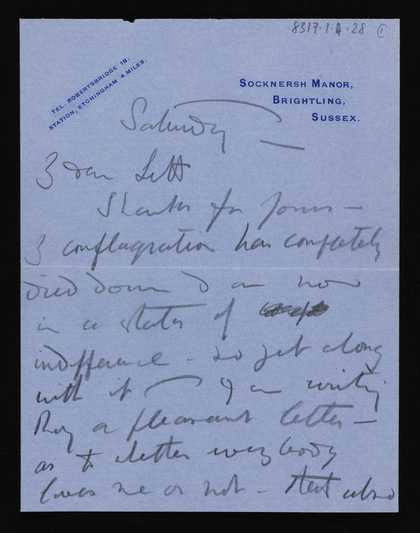 8317.1.A.28 1
TEL. ROBERTSBRIDGE 18.
STATION, ETCHINGHAM 4 MILES.
SOCKNERSH MANOR,
BRIGHTLING,
SUSSEX.
Saturday
dear Lett
Thanks for yours —
conflagration has completely
died down & am now
in a state of
indifference — so get along
with it — I am writing
Roy a pleasant letter —
as to whether everybody
loves me or not — that also